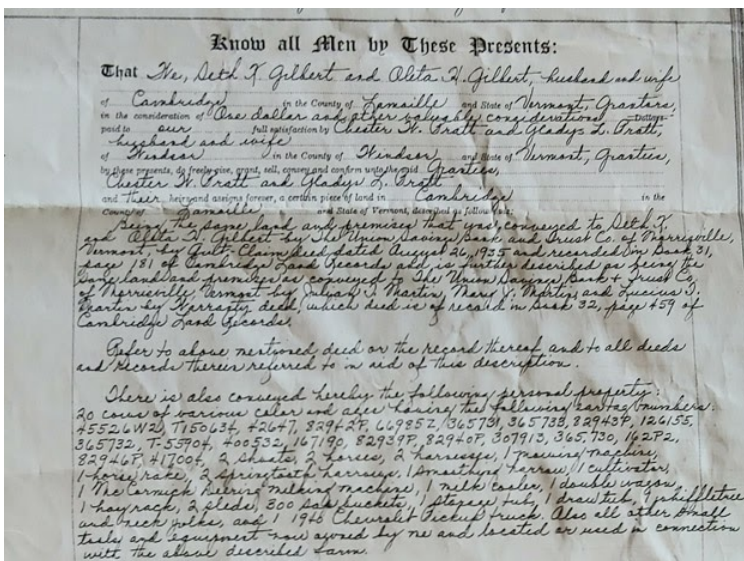 Know all Men by These Presents:
That We, Seth K. Gilbert and Oleta H. Gilbert, husband and wife
of Cambridge in the County of Lamoille and State of Vermont, Grantors,
in the consideration of One dollar and other valuable considerations Dollars
paid to our full satisfaction by Chester W. Pratt and Gladys L. Pratt,
husband and wife
of Windsor in the County of Windsor and State of Vermont, Grantees,
by these presents, do freely give, grant, sell, convey and confirm unto the said Grantees,
Chester W. Pratt and Gladys L. Pratt
and their heirs and assigns forever, a certain piece of land in Cambridge in the
County of Lamoille and State of Vermont, described as follows, viz:
Being the same land and premises that was conveyed to Seth K.
and Oleta H. Gilbert by The Union Savings Bank and Trust Co. of Morrisville,
Vermont, by Quit Claim deed dated August 26, 1935 and recorded in Book 31,
page 181 of Cambridge Land Records and is further described as being the
same land and premises as conveyed to The Union Savings Bank & Trust Co.
of Morrisville, Vermont by J. Martin, Mary J. Martin and Lucius J.
Martin by Warranty deed, which deed is of record in Book 32, page 459 of
Cambridge Land Records.
Refer to above mentioned deed or the record thereof and to all deeds
and records therein referred to in aid of this description.
There is also conveyed hereby the following personal property:
20 cows of various color and ages having the following eartag numbers.
45526W2, T150634, 42647, 82942P, 66985Z, 365731, 365733, 82943P, 126155,
365732, T-55904, 400532, 167190, 82939P, 82940P, 307913, 365,730, 162P2,
82946P, 417004, 2 shoats, 2 horses, 2 harnesses, 1 mowing machine,
1 horse rake, 2 springtooth harrows, 1 smoothing harrow, 1 cultivator,
1 McCormick Deering milking machine, 1 milk cooler, 1 double wagon,
1 hay rack, 2 sleds, 300 sap buckets, 1 storage tub, 1 draw tub, 9 whiffletrees
and neck yolks, and 1 1946 Chevrolet Pickup truck. Also all other small
tools and equipment now owned by me and located or used in connection
with the above described farm.